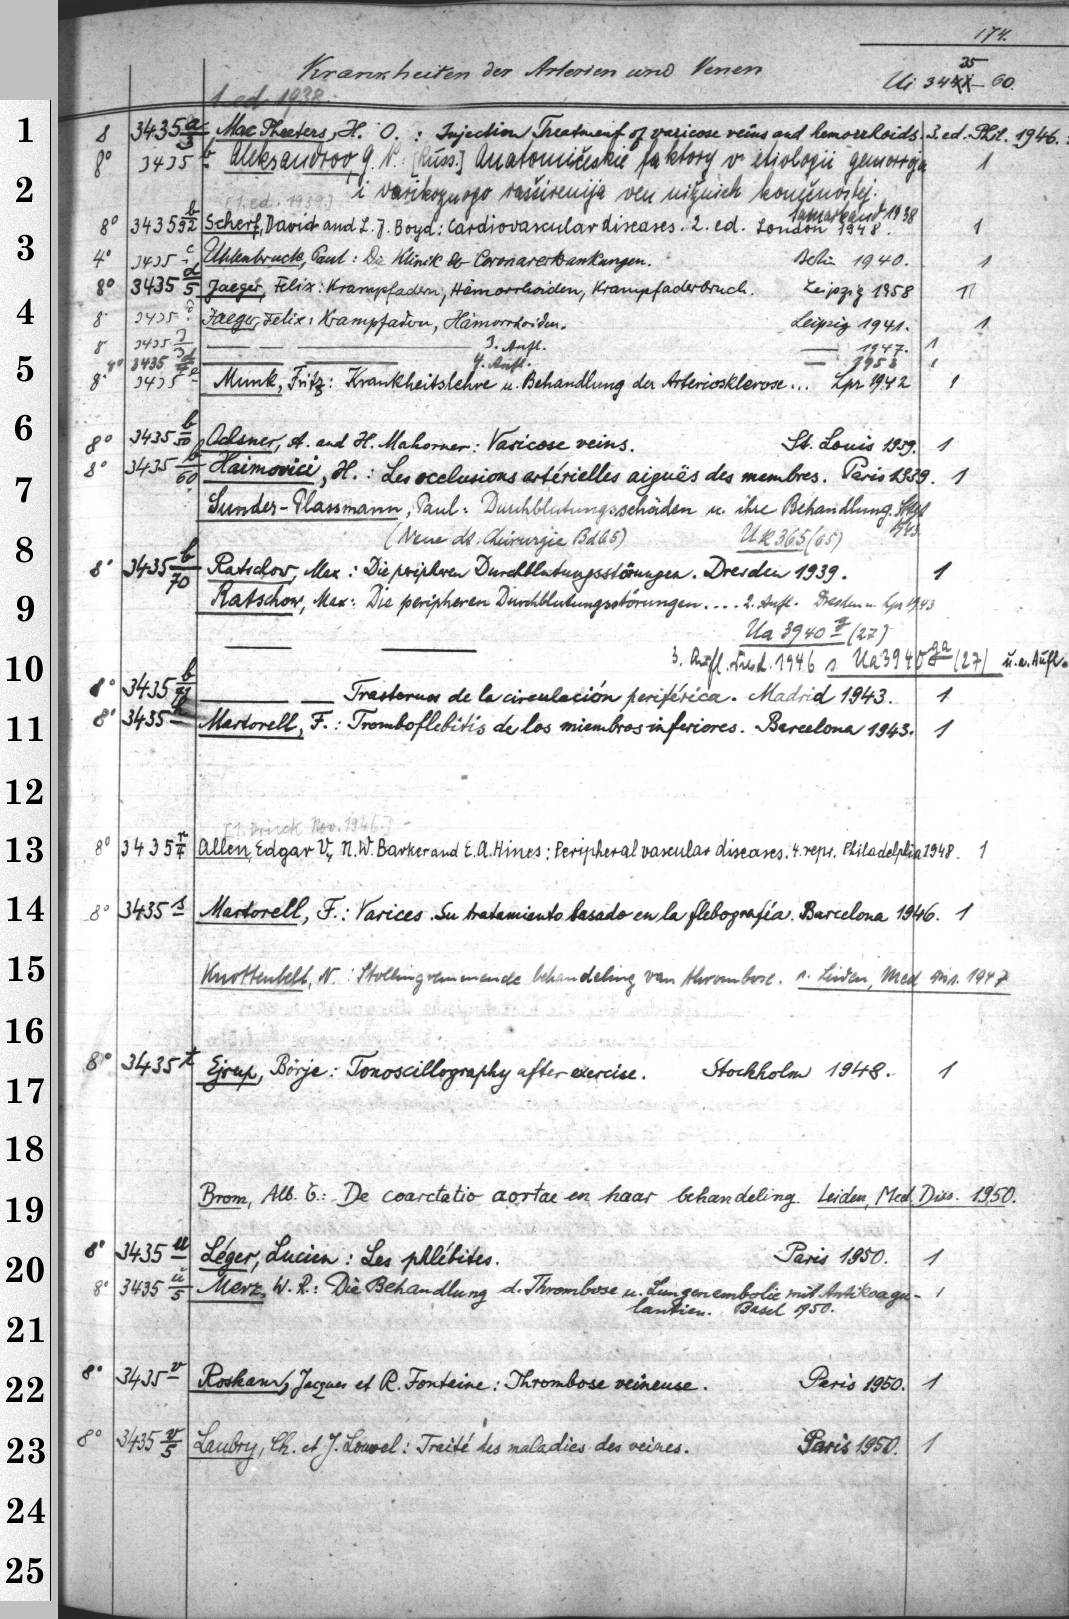 174.
Krankheiten der Arterien und Venen
25
Ui 34 60.
1 ed 1938.
1
8 3435 a/3 Mac Pheeters, H. O. : Injection Treatment of varicose veins and hemorrhoids. 3. ed. Phil. 1946.
8° 3435 b Aleksandrov, G. N. [Russ.] Anatomičeskie faktory v etiologii gemorroja 1
2
i varikoznogo rasširenija ven nižnich konečnostej.
[1. ed. 1939] Samarkand 1938
8° 3435 b/92 Scherf, David and L. J. Boyd: Cardiovascular diseases. 2. ed. London 1948. 1
3
4° 3435 c Uhlenbruck, Paul: Die Klinik der Coronarerkrankungen. Berlin 1940. 1
8° 3435 d/5 Jaeger, Felix: Krampfadern, Hämorrhoiden, Krampfaderbruch. Leipzig 1958 1
4
8 3435 Jaeger, Felix: Krampfadern, Hämorrhoiden. Leipzig 1941. 1
8 3435 — — — 3. Aufl. — 1947. 1
3435 — — 4. Aufl. — 1953 1
5
8° 3435 e Munk, Fritz: Krankheitslehre u. Behandlung der Arteriosklerose... Lpz 1942 1
6
8° 3435 b/50 Ochsner, A. and H. Mahorner: Varicose veins. St. Louis 1939. 1
8° 3435 b/60 Haimovici, H.: Les occlusions artérielles aiguës des membres. Paris 1939. 1
7
Sunder-Plassmann, Paul: Durchblutungsschäden u. ihre Behandlung. Stgt 1943
8
(Neue dt. Chirurgie Bd 65) Uk 365 (65)
8° 3435 b/70 Ratschow, Max: Die peripheren Durchblutungsstörungen. Dresden 1939. 1
9
Ratschow, Max: Die peripheren Durchblutungsstörungen.... 2. Aufl. Dresden u. Lpz 1943
Ua 3940 g (27)
10
— — 3. Aufl. Dresd. 1946 s. Ua 3940 ga (27) u. a. Aufl.
8° 3435 b — — Trastornos de la circulación periférica. Madrid 1943. 1
11
8° 3435 Martorell, F.: Tromboflebitis de los miembros inferiores. Barcelona 1943. 1
12
[1. Druck Nov. 1946.]
13
8° 3435 r/4 Allen, Edgar V., N. W. Barker and E. A. Hines: Peripheral vascular diseases. 4. repr. Philadelphia 1948. 1
14
8° 3435 s Martorell, F.: Varices. Su tratamiento basado en la flebografía. Barcelona 1946. 1
15
Knottenbelt, N. : Stollingremmende behandeling van thrombose. s. Leiden, Med Diss. 1947
16
8° 3435 t Ejrup, Börje: Tonoscillography after exercise. Stockholm 1948. 1
17
18
19
Brom, Alb. G.: De coarctatio aortae en haar behandeling. Leiden, Med. Diss. 1950.
20
8° 3435 u Léger, Lucien: Les phlébites. Paris 1950. 1
8° 3435 u/5 Merz, W. R.: Die Behandlung d. Thrombose u. Lungenembolie mit Antikoagu- 1
lantien. Basel 1950.
21
22
8° 3435 v Roskam, Jacques et R. Fontaine: Thrombose veineuse. Paris 1950. 1
23
8° 3435 v/5 Laubry, Ch. et J. Louvel: Traité des maladies des veines. Paris 1950. 1
24
25